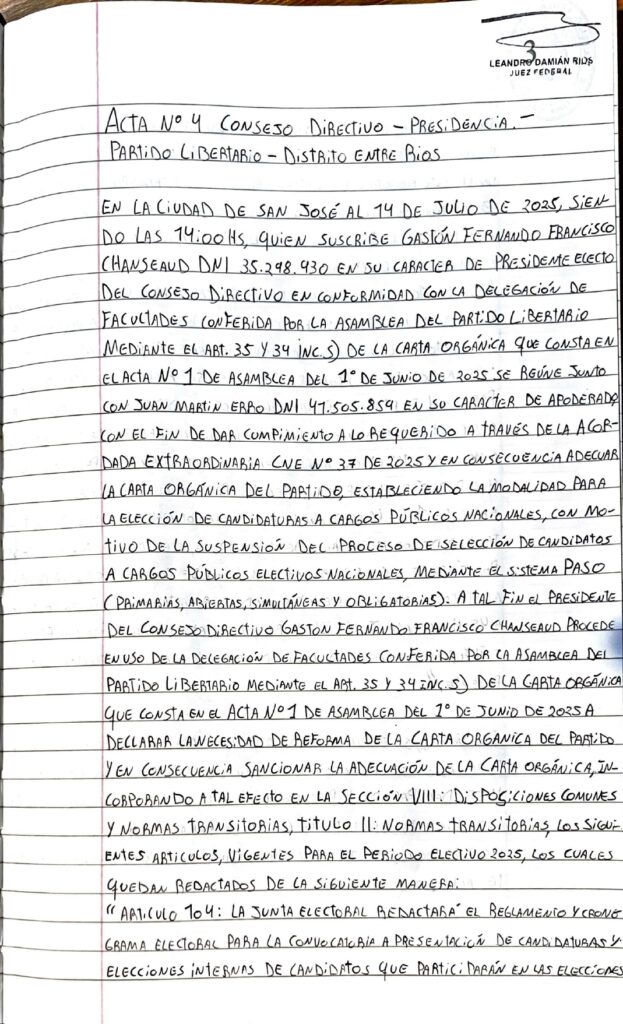 3
LEANDRO DAMIÁN RIOS
JUEZ FEDERAL
ACTA Nº 4 CONSEJO DIRECTIVO - PRESIDENCIA.-
PARTIDO LIBERTARIO - DISTRITO ENTRE RIOS
EN LA CIUDAD DE SAN JOSÉ AL 14 DE JULIO DE 2025, SIEN-
DO LAS 14:00HS, QUIEN SUSCRIBE GASTÓN FERNANDO FRANCISCO
CHANSEAUD DNI 35.298.930 EN SU CARACTER DE PRESIDENTE ELECTO
DEL CONSEJO DIRECTIVO EN CONFORMIDAD CON LA DELEGACIÓN DE
FACULTADES CONFERIDA POR LA ASAMBLEA DEL PARTIDO LIBERTARIO
MEDIANTE EL ART. 35 Y 34 INC.S) DE LA CARTA ORGÁNICA QUE CONSTA EN
EL ACTA Nº 1 DE ASAMBLEA DEL 1º DE JUNIO DE 2025 SE REÚNE JUNTO
CON JUAN MARTIN ERRO DNI 47.505.854 EN SU CARACTER DE APODERADO,
CON EL FIN DE DAR CUMPIMIENTO A LO REQUERIDO A TRAVÉS DE LA ACOR-
DADA EXTRAORDINARIA CNE Nº 37 DE 2025 Y EN CONSECUENCIA ADECUAR
LA CARTA ORGÁNICA DEL PARTIDO, ESTABLECIENDO LA MODALIDAD PARA
LA ELECCIÓN DE CANDIDATURAS A CARGOS PÚBLICOS NACIONALES, CON MO-
TIVO DE LA SUSPENSIÓN DEL PROCESO DE SELECCIÓN DE CANDIDATOS
A CARGOS PÚBLICOS ELECTIVOS NACIONALES, MEDIANTE EL SISTEMA PASO
(PRIMARIAS, ABIERTAS, SIMULTÁNEAS Y OBLIGATORIAS). A TAL FIN EL PRESIDENTE
DEL CONSEJO DIRECTIVO GASTON FERNANDO FRANCISCO CHANSEAUD PROCEDE
EN USO DE LA DELEGACIÓN DE FACULTADES CONFERIDA POR LA ASAMBLEA DEL
PARTIDO LIBERTARIO MEDIANTE EL ART. 35 Y 34 INC.S) DE LA CARTA ORGÁNICA
QUE CONSTA EN EL ACTA Nº 1 DE ASAMBLEA DEL 1º DE JUNIO DE 2025 A
DECLARAR LA NECESIDAD DE REFORMA DE LA CARTA ORGANICA DEL PARTIDO
Y EN CONSECUENCIA SANCIONAR LA ADECUACIÓN DE LA CARTA ORGÁNICA, IN-
CORPORANDO A TAL EFECTO EN LA SECCIÓN VIII: DISPOSICIONES COMUNES
Y NORMAS TRANSITORIAS, TITULO II: NORMAS TRANSITORIAS, LOS SIGUI-
ENTES ARTICULOS, VIGENTES PARA EL PERIODO ELECTIVO 2025, LOS CUALES
QUEDAN REDACTADOS DE LA SIGUIENTE MANERA:
"ARTICULO 104: LA JUNTA ELECTORAL REDACTARÁ EL REGLAMENTO Y CRONO-
GRAMA ELECTORAL PARA LA CONVOCATORIA A PRESENTACIÓN DE CANDIDATURAS Y
ELECCIONES INTERNAS DE CANDIDATOS QUE PARTICIDARÁN EN LAS ELECCIONES